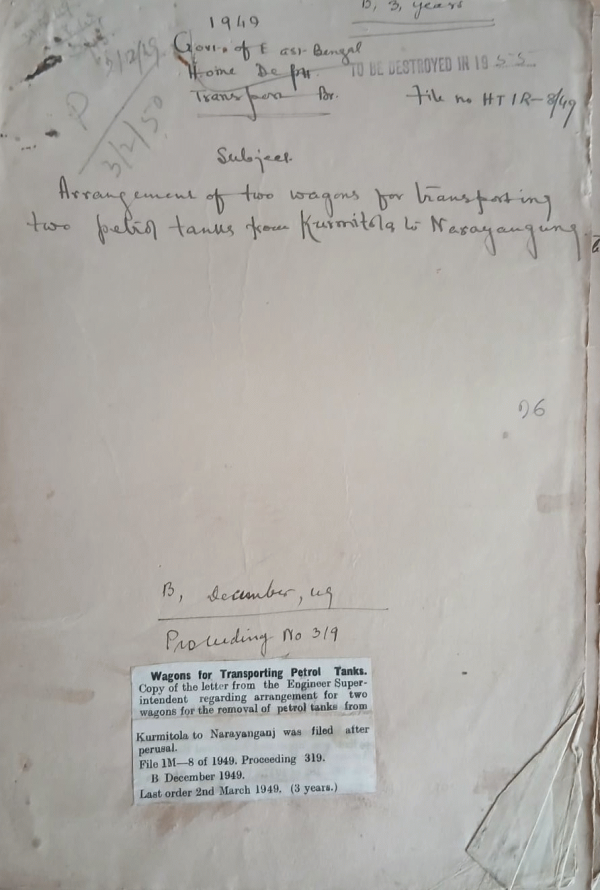 B, 3, years
1949
Govt. of East Bengal
Home Deptt.
TO BE DESTROYED IN 19 55
Transport Br.
File no HT1R-8/49
P
3/2/50
Subject.
Arrangement of two wagons for transporting
two petrol tanks from Kurmitola to Narayangung
96
B, December, 49
Proceeding No 319
Wagons for Transporting Petrol Tanks.
Copy of the letter from the Engineer Super-
intendent regarding arrangement for two
wagons for the removal of petrol tanks from
Kurmitola to Narayanganj was filed after
perusal.
File 1M—8 of 1949. Proceeding 319.
B December 1949.
Last order 2nd March 1949. (3 years.)